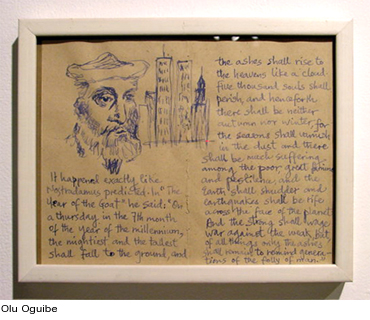 It happened exactly like
Nostradamus predicted. In "The
Year of the Goat" he said: "On
a thursday in the 7th month
of the year of the millennium,
the mightiest and the tallest
shall fall to the ground, and
the ashes shall rise to
the heavens like a cloud
five thousand souls shall
perish, and henceforth
there shall be neither
autumn nor winter, for
the seasons shall vanish
in the dust and there
shall be much suffering
among the poor, great famine
and pestilence and the
Earth shall shudder and
earthquakes shall be rife
across the face of the planet
But the strong shall wage
war against the weak, but
of all things only the ashes
shall remain to remind genera-
tions of the folly of man."
Olu Oguibe